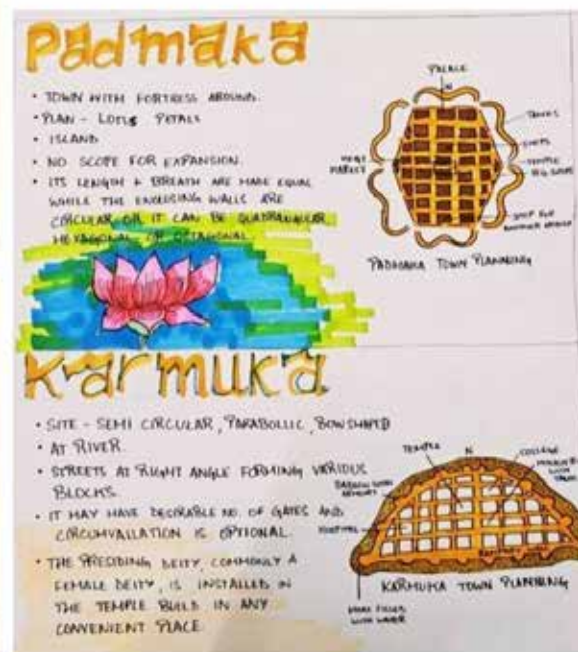 Padmaka
• TOWN WITH FORTRESS AROUND.
• PLAN - LOTUS PETALS
• ISLAND
• NO SCOPE FOR EXPANSION.
• ITS LENGTH & BREATH ARE MADE EQUAL
WHILE THE ENCLOSING WALLS ARE
CIRCULAR OR IT CAN BE QUADRANGULAR
HEXAGONAL OR OCTAGONAL.
PALACE
N
TANKS
SHOPS
TEMPLE
MARKET
PADMAKA TOWN PLANNING
Karmuka
• SITE - SEMI CIRCULAR, PARABOLLIC, BOWSHAPED
• AT RIVER.
• STREETS AT RIGHT ANGLE FORMING VARIOUS
BLOCKS.
• IT MAY HAVE DESIRABLE NO. OF GATES AND
CIRCUMVALLATION IS OPTIONAL.
• THE PRESIDING DEITY, COMMONLY A
FEMALE DEITY, IS INSTALLED IN
THE TEMPLE BUILD IN ANY
CONVENIENT PLACE
TEMPLE
N
COLLEGE
HOSPITAL
KARMUKA TOWN PLANNING
MOAT FILLED
WITH WATER